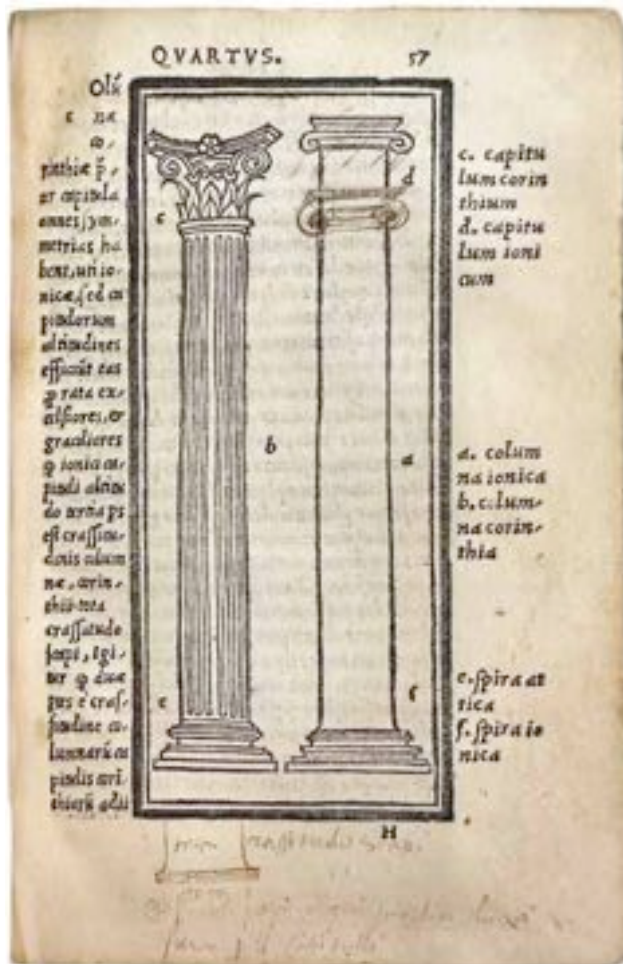 QVARTVS. 57
Olũ
e næ
co-
rinthiæ p̃-
ter capitula
omnes sym-
metrias ha
bent, uti io-
nicæ, sed ca
pitulorum
altitudines
efficiũt eas
ꝓ rata ex-
celsiores, et
graciliores
ꝙ ionici ca-
pituli altitu
do tertia ps
est crassitu-
dinis colum
næ, corin-
thii tota
crassitudo
scapi, igi-
tur ꝙ duæ
ptis e cras-
situdine co-
lumnarũ ca
pitulis cori
thiorũ adii
c
d
b
a
e
f
c. capitu
lum corin
thium
d. capitu
lum ioni
cum
a. colum
na ionica
b. colum-
na corin-
thia
e. spira at
tica
f. spira io
nica
H